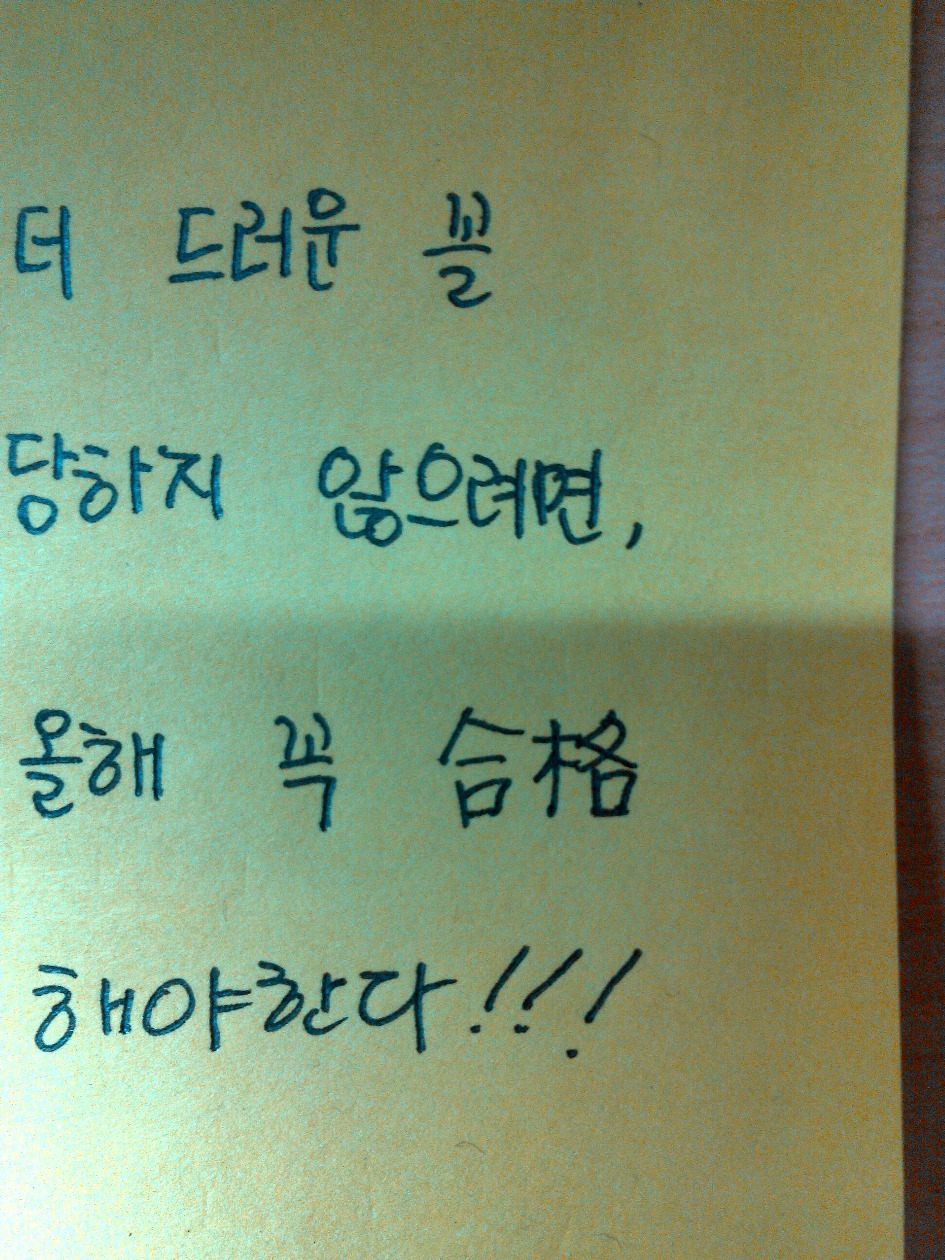 더 드러운 꼴
당하지 않으려면,
올해 꼭 合格
해야한다!!!